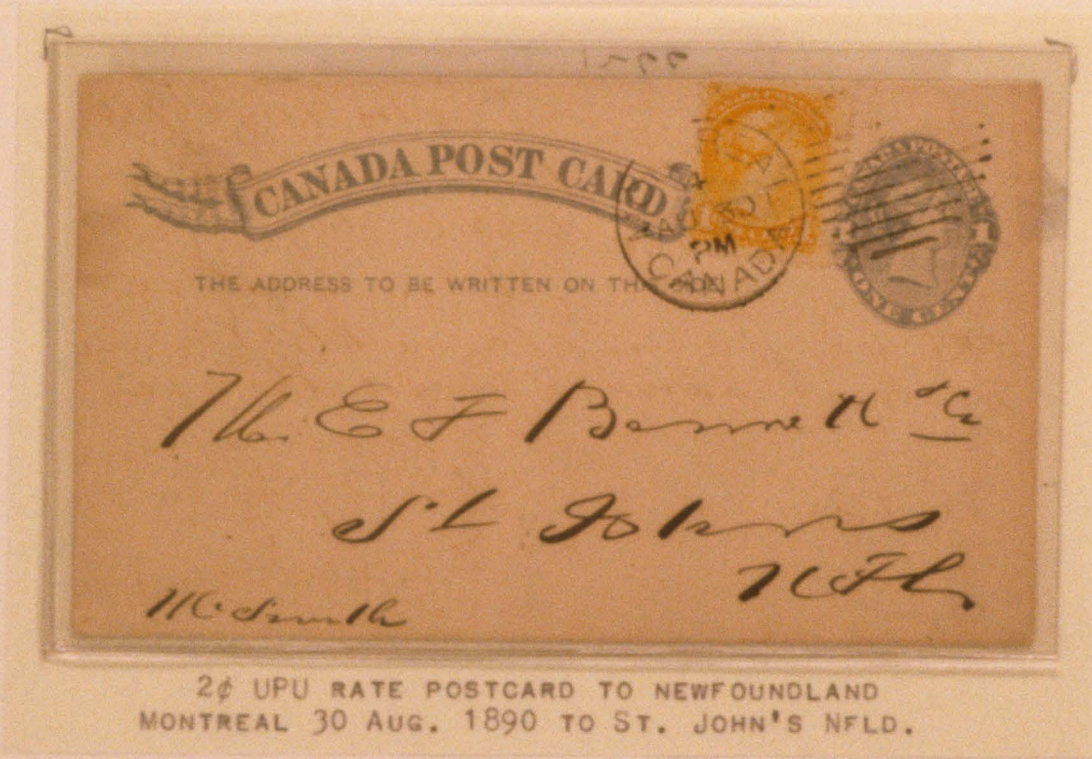 CANADA POST CARD
THE ADDRESS TO BE WRITTEN ON THE SIDE
PM
CANADA
E F Bennett & Co
St Johns
Nfld
2¢ UPU RATE POSTCARD TO NEWFOUNDLAND
MONTREAL 30 AUG. 1890 TO ST. JOHN'S NFLD.